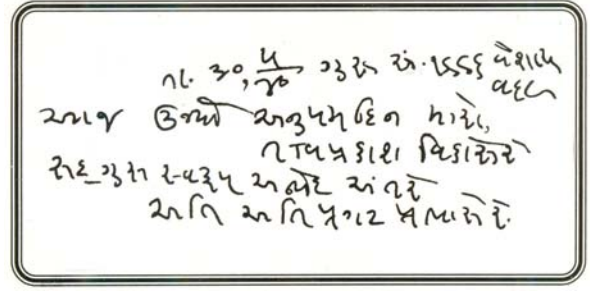 તા. ૩૦, ૫/૪૦ ગુરુ સં. ૧૯૯૬ વૈશાખ
વદ
આજ ઉગ્યો અનુપમ દિન મારો,
તત્ત્વ પ્રકાશ વિકાસે રે
સદ્‌ગુરુ સ્વરૂપ અભેદ અંતરે
અતિ અતિ પ્રગટ પ્રભાસે રે.